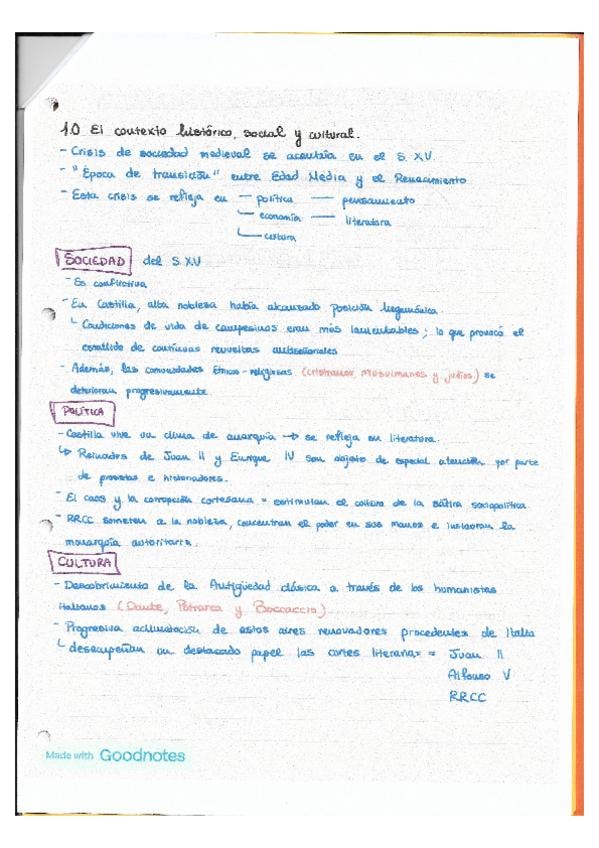 1.0 El contexto histórico, social y cultural.
- Crisis de sociedad medieval se acentúa en el S. XV.
- "Época de transición" entre Edad Media y el Renacimiento
- Esta crisis se refleja en — política — pensamiento
— economía — literatura
— cultura
SOCIEDAD del S. XV
- Es conflictiva
- En Castilla, alta nobleza había alcanzado posición hegemónica.
Condiciones de vida de campesinos eran más lamentables; lo que provocó el
estallido de continuas revueltas antiseñoriales
- Además, las comunidades étnico-religiosas (cristianos, musulmanes y judíos) se
deterioran progresivamente.
POLÍTICA
- Castilla vive un clima de anarquía → se refleja en literatura.
↳ Reinados de Juan II y Enrique IV son objeto de especial atención por parte
de prosistas e historiadores.
- El caos y la corrupción cortesana = estimulan el cultivo de la sátira sociopolítica.
- RRCC someten a la nobleza, concentran el poder en sus manos e instauran la
monarquía autoritaria.
CULTURA
- Descubrimiento de la Antigüedad clásica a través de los humanistas
italianos (Dante, Petrarca y Boccaccio)
- Progresiva aclimatación de estos aires renovadores procedentes de Italia
desempeñan un destacado papel las cortes literarias = Juan II
Alfonso V
RRCC
Made with Goodnotes